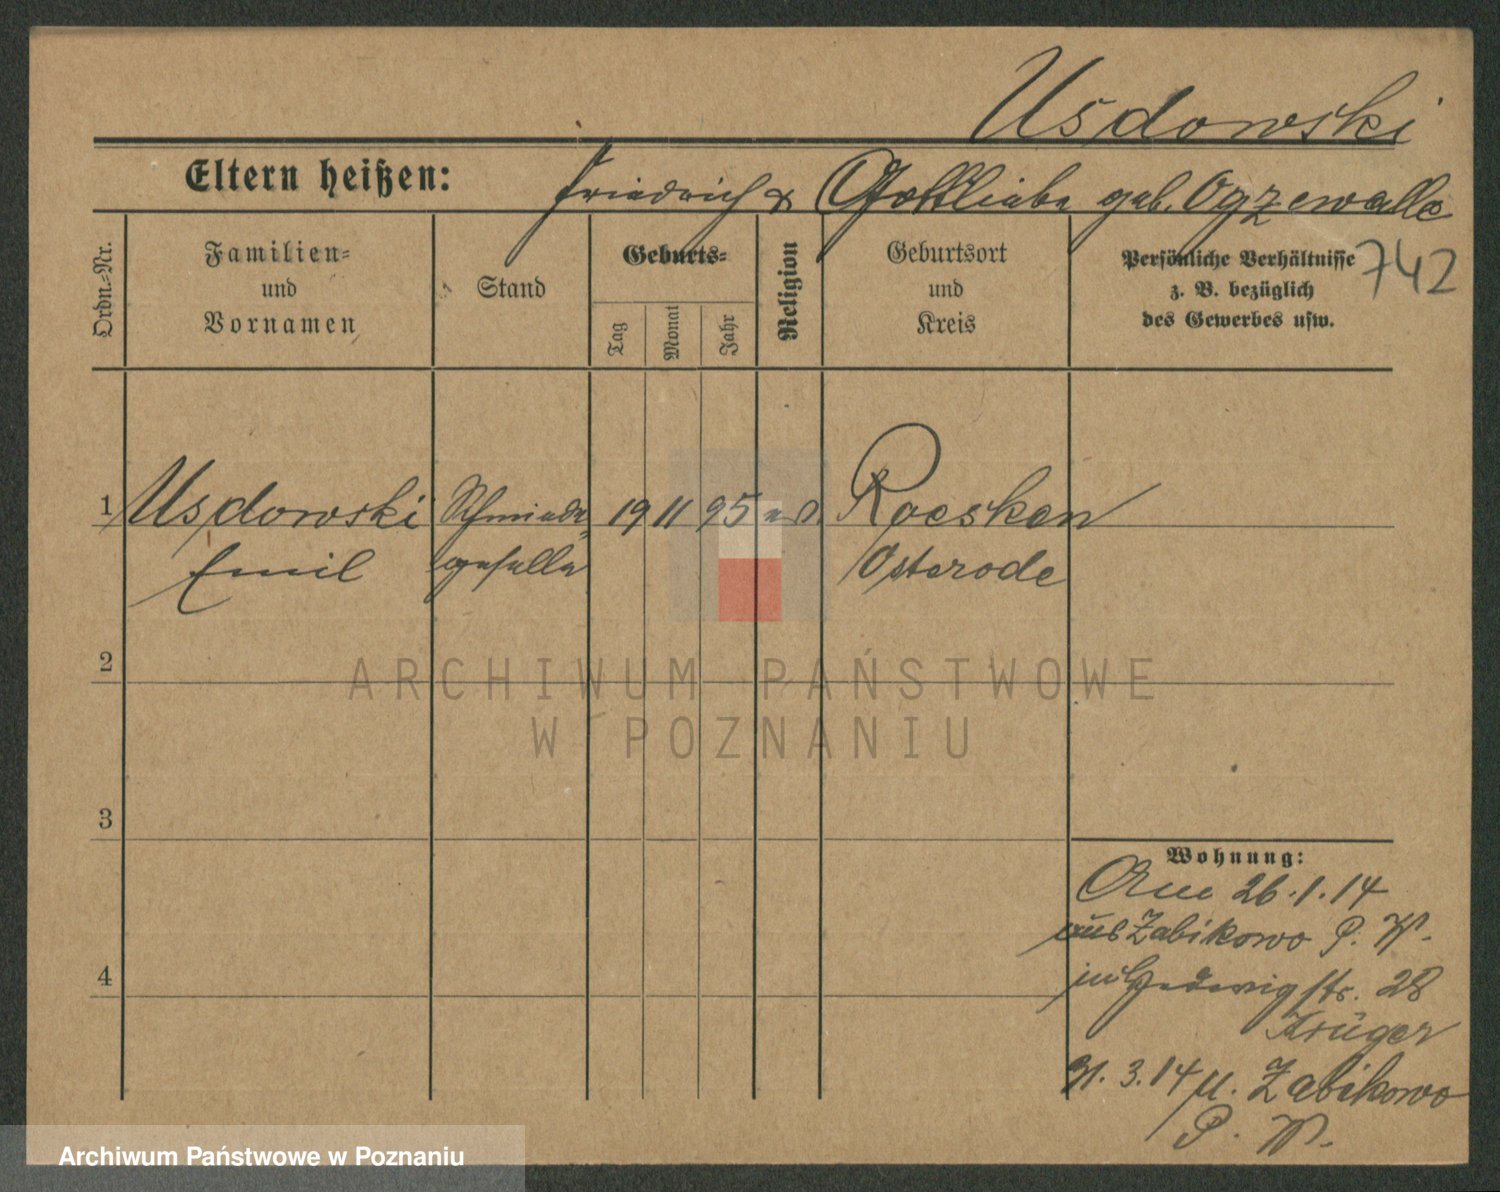 Usdowski
Eltern heißen: Friedrich & Gottliebe geb. Ogzewalle
742
Ordn.-Nr.
Familien-
und
Vornamen
Stand
Geburts-
Tag
Monat
Jahr
Religion
Geburtsort
und
Kreis
Persönliche Verhältnisse
z. B. bezüglich
des Gewerbes usw.
1 Usdowski Schmiede 19 11 95 Roesken
Emil geselle Osterode
2
ARCHIWUM PAŃSTWOWE
W POZNANIU
3
Wohnung:
26.1.14
aus Zabikowo P. W.
in Hedwigstr. 28
Krüger
31.3.14 n. Zabikowo
P. W.
4
Archiwum Państwowe w Poznaniu